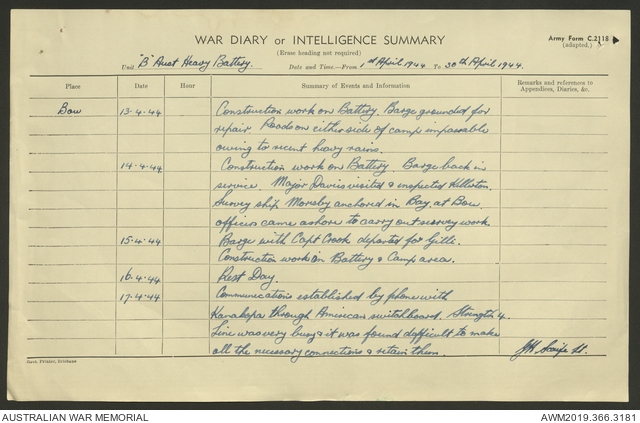 WAR DIARY or INTELLIGENCE SUMMARY
Army Form C.2118
(Erase heading not required)
(adapted.)
Unit "B" Aust Heavy Battery. Date and Time.—From 1st April 1944 To 30th April 1944.
Place Date Hour Summary of Events and Information Remarks and references to Appendices, Diaries, &c.
Bow 13-4-44 Construction work on Battery. Barge grounded for
repair. Roads on either side of camp impassable
owing to recent heavy rains.
14-4-44 Construction work on Battery. Barge back in
service. Major Davis visited & inspected
Survey ship Moresby anchored in Bay, at Bow
officers came ashore to carry out survey work.
15-4-44 Barge with Capt Crook departed for Gilli.
Construction work on Battery & Camp area.
16-4-44 Rest Day.
17-4-44 Communications established by phone with
Kanakopa through American switchboard. Strength 4.
Line was very busy & it was found difficult to make
all the necessary connections & retain them.
Lt.
Govt. Printer, Brisbane
AUSTRALIAN WAR MEMORIAL
AWM2019.366.3181